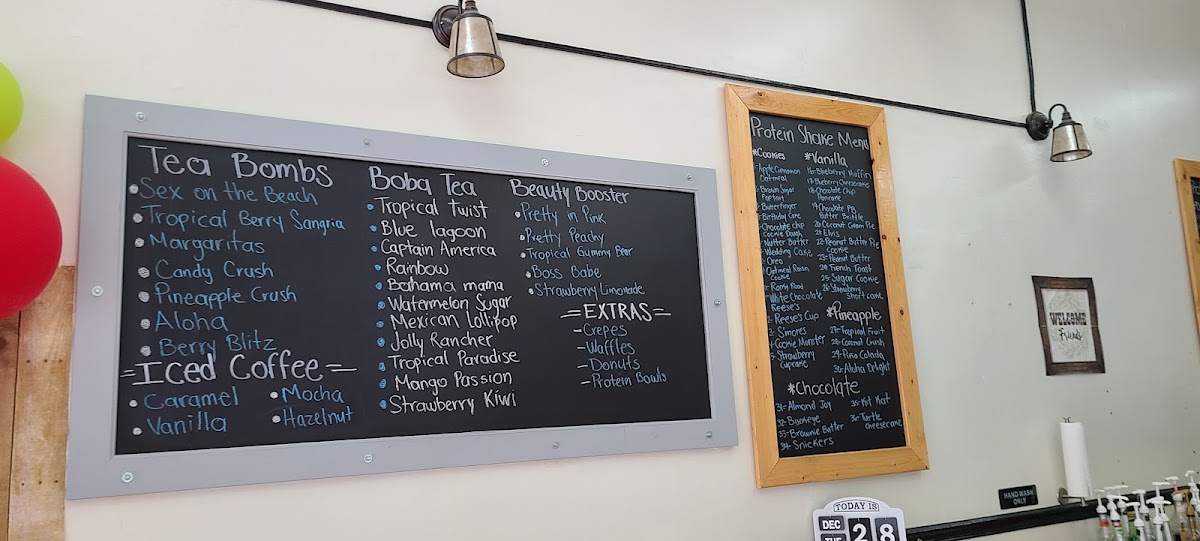 Tea Bombs
Sex on the Beach
Tropical Berry Sangria
Margaritas
Candy Crush
Pineapple Crush
Aloha
Berry Blitz
=Iced Coffee=
Caramel
Vanilla
Mocha
Hazelnut
Boba Tea
Tropical Twist
Blue lagoon
Captain America
Rainbow
Bahama mama
Watermelon Sugar
Mexican Lollipop
Jolly Rancher
Tropical Paradise
Mango Passion
Strawberry Kiwi
Beauty Booster
Pretty in Pink
Pretty Peachy
Tropical Gummy Bear
Boss Babe
Strawberry Limonade
=EXTRAS=
-Crepes
-Waffles
-Donuts
-Protein Bowls
Protein Shake Menu
*Cookies
Apple Cinnamon
Oatmeal
Brown Sugar
Pop tart
Butterfinger
Birthday Cake
Chocolate chip
Cookie Dough
Nutter Butter
Wedding Cake
Oreo
Oatmeal Raisin
Cookie
Rocky Road
White Chocolate
Reese's
Reese's Cup
S'mores
Cookie Monster
Strawberry
Cupcake
*Vanilla
16- Blueberry Muffin
17- Blueberry Cheesecake
18- Chocolate Chip
Pancake
19- Chocolate PB
Butter Brittle
20- Coconut Cream Pie
21- Elvis
22- Peanut Butter Pie
Cookie
23- Peanut Butter
24- French Toast
25- Sugar Cookie
26- Strawberry
Short cake
*Pineapple
27- Tropical Fruit
28- Coconut Crush
29- Pina Colada
30- Aloha Delight
*Chocolate
31- Almond Joy
32- Buckeye
33- Brownie Batter
34- Snickers
35- Kit Kat
36- Turtle
Cheesecake
WELCOME
Friends
HAND WASH
ONLY
TODAY IS
DEC
TUE
28